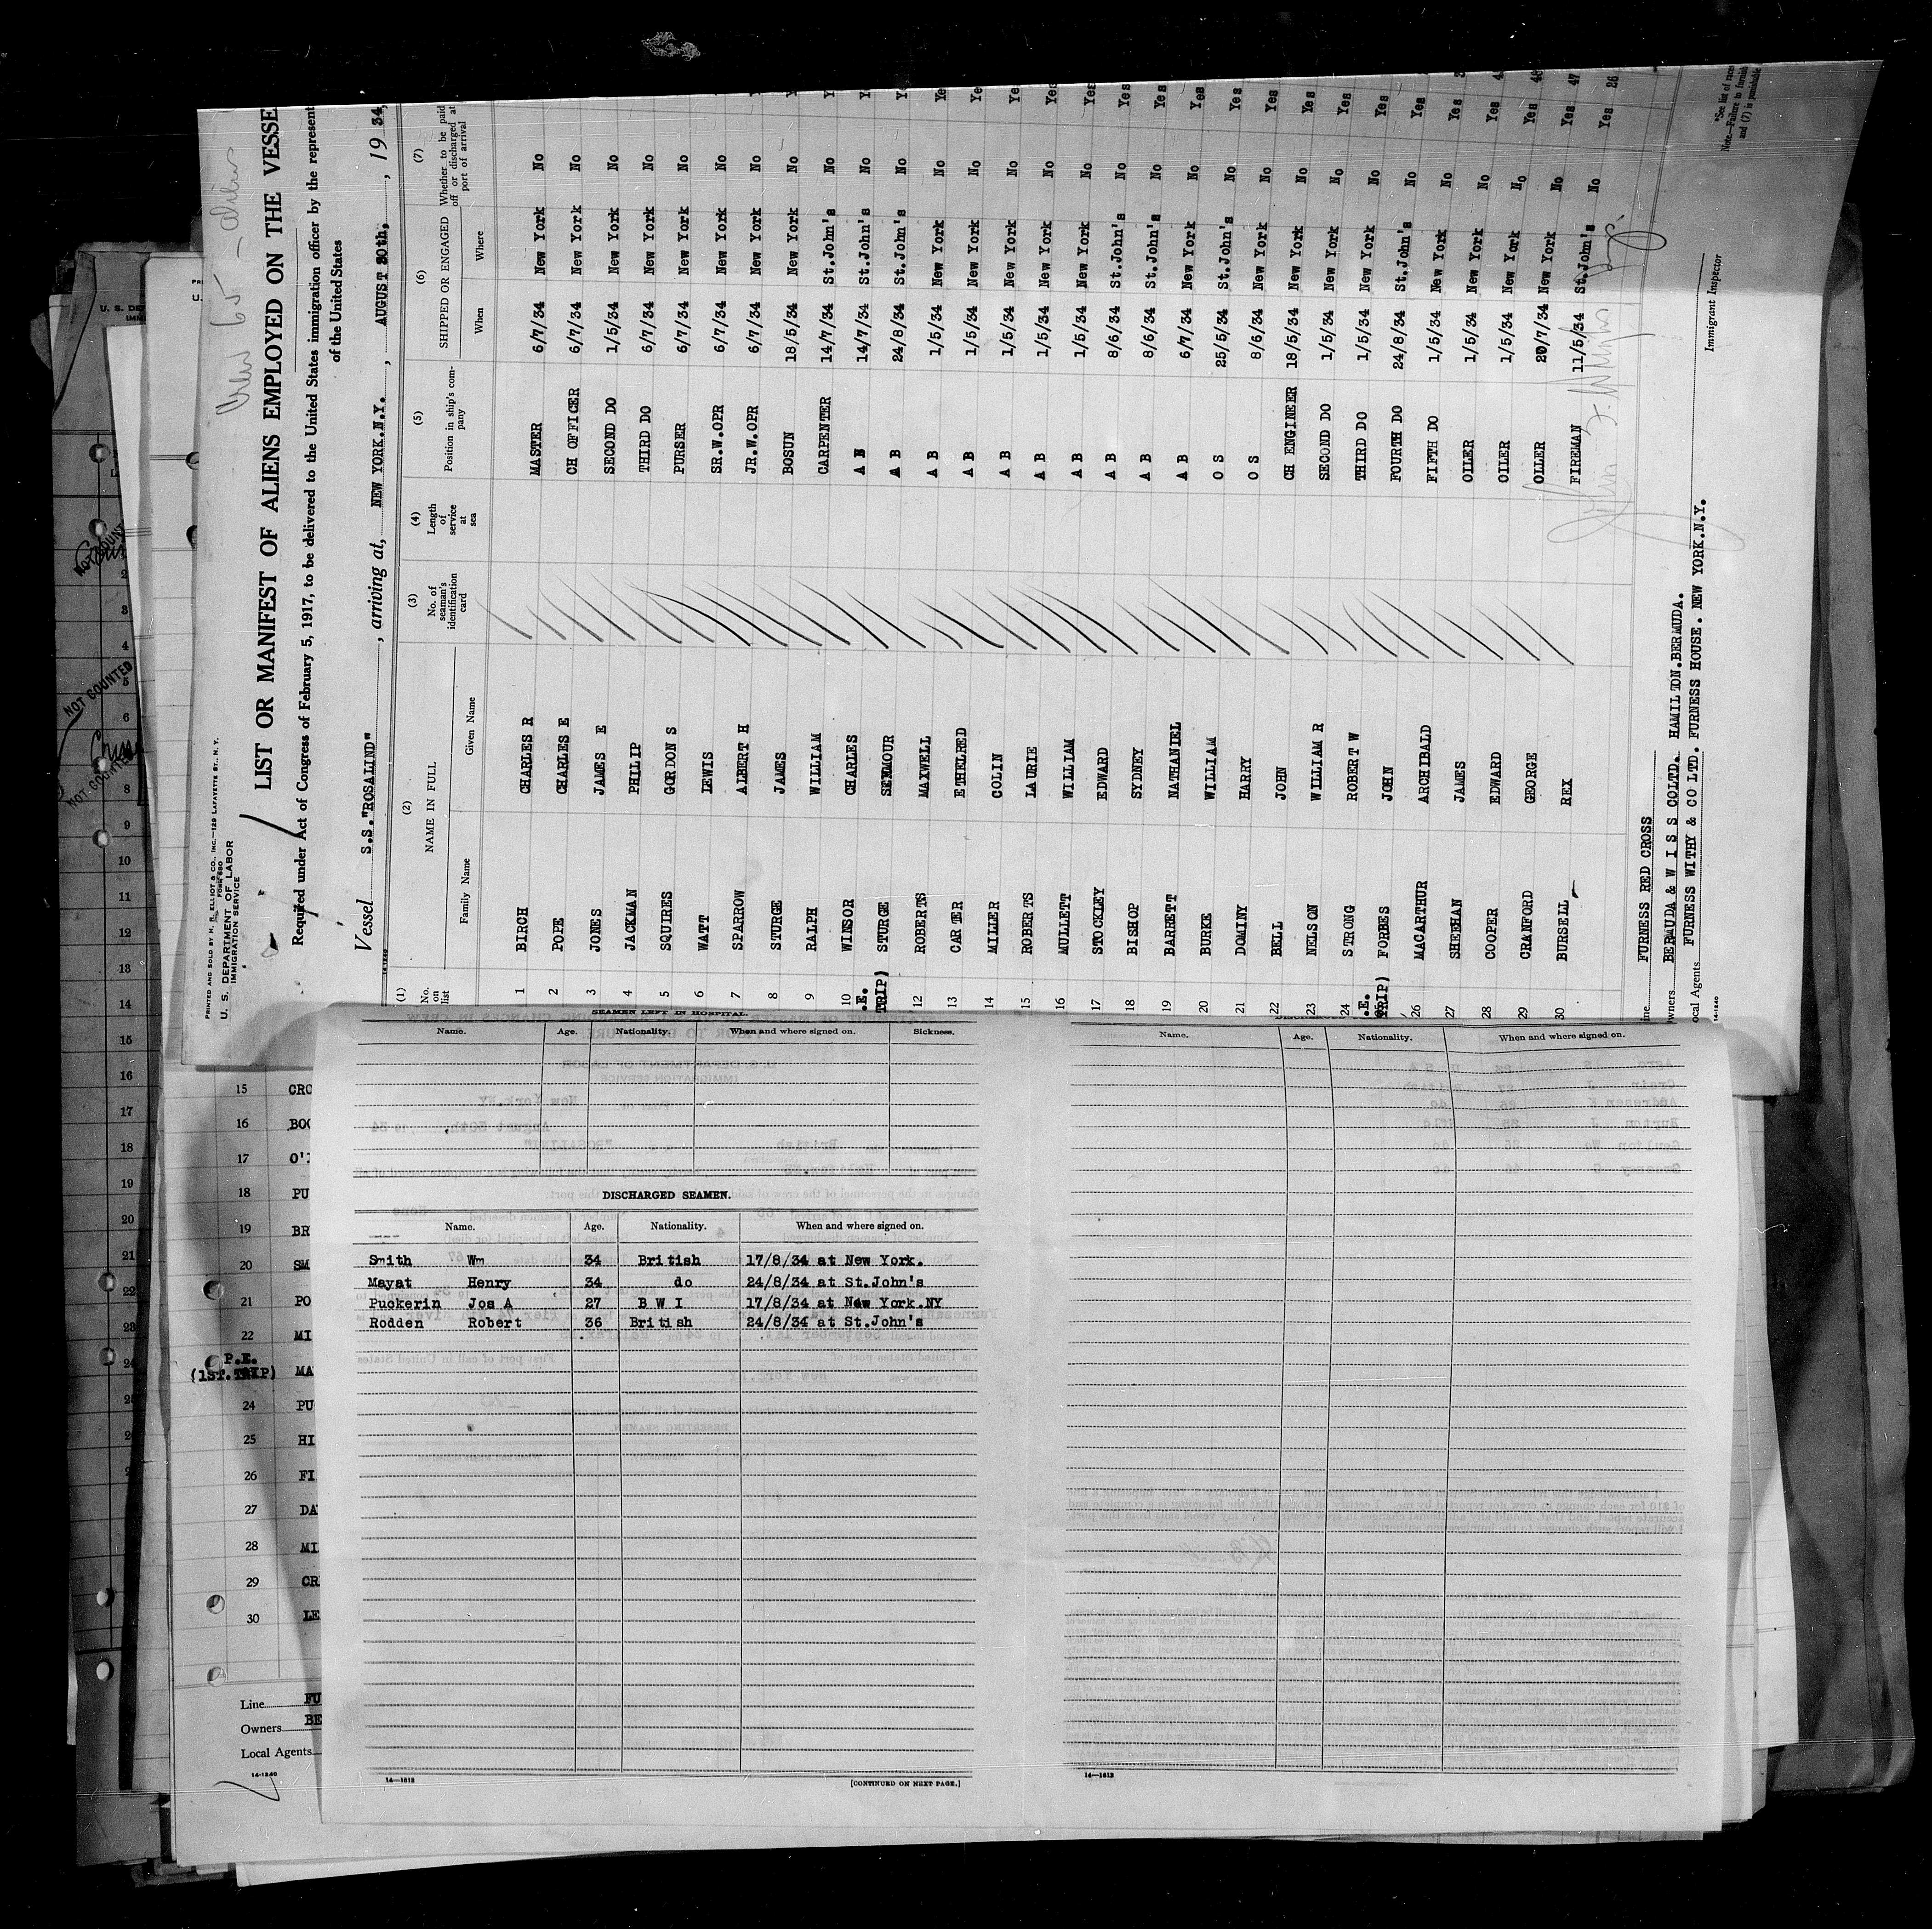 PRINTED AND SOLD BY H. R. ELLIOT & CO., INC.—129 LAFAYETTE ST., N. Y.
FORM 680
U. S. DEPARTMENT OF LABOR
IMMIGRATION SERVICE
Crew 65 - aliens
LIST OR MANIFEST OF ALIENS EMPLOYED ON THE VESSE
Required under Act of Congress of February 5, 1917, to be delivered to the United States immigration officer by the represent
of the United States
Vessel S.S."ROSALIND" , arriving at, NEW YORK.N.Y. , AUGUST 30th, , 19 34,
14-1240
(1) (2) (3) (4) (5) (6) (7)
No. on list NAME IN FULL No. of seaman's identification card Length of service at sea Position in ship's company SHIPPED OR ENGAGED Whether to be paid off or discharged at port of arrival
Family Name Given Name When Where
1 BIRCH CHARLES R MASTER 6/7/34 New York No
2 POPE CHARLES E CH OFFICER 6/7/34 New York No
3 JONES JAMES E SECOND DO 1/5/34 New York No
4 JACKMAN PHILIP THIRD DO 6/7/34 New York No
5 SQUIRES GORDON S PURSER 6/7/34 New York No
6 WATT LEWIS SR.W.OPR 6/7/34 New York No
7 SPARROW ALBERT H JR.W.OPR 6/7/34 New York No
8 STURGE JAMES BOSUN 18/5/34 New York No
9 RALPH WILLIAM CARPENTER 14/7/34 St.John's No
10 WINSOR CHARLES A B 14/7/34 St.John's No
.E. TRIP) STURGE SENMOUR A B 24/8/34 St.John's No
12 ROBERTS MAXWELL A B 1/5/34 New York No Yes
13 CARTER ETHELRED A B 1/5/34 New York No Yes
14 MILLER COLIN A B 1/5/34 New York No Yes
15 ROBERTS LAURIE A B 1/5/34 New York No Yes
16 MULLETT WILLIAM A B 1/5/34 New York No Yes
17 STOCKLEY EDWARD A B 8/6/34 St.John's No Yes
18 BISHOP SYDNEY A B 8/6/34 St.John's No Yes
19 BARRETT NATHANIEL A B 6/7/34 New York No Yes
20 BURKE WILLIAM O S 25/5/34 St.John's No Yes
21 DOMINY HARRY O S 8/6/34 New York No Yes
22 BELL JOHN CH ENGINEER 18/5/34 New York No Yes
23 NELSON WILLIAM R SECOND DO 1/5/34 New York No Yes
24 STRONG ROBERT W THIRD DO 1/5/34 New York No Yes
.E. TRIP) FORBES JOHN FOURTH DO 24/8/34 St.John's No Yes
26 MACARTHUR ARCHIBALD FIFTH DO 1/5/34 New York No Yes
27 SHEEHAN JAMES OILER 1/5/34 New York No Yes
28 COOPER EDWARD OILER 1/5/34 New York No Yes
29 CRANFORD GEORGE OILER 20/7/34 New York No Yes 47
30 BURSELL REX FIREMAN 11/5/34 St.John's No Yes 26
ine FURNESS RED CROSS
wners BERMUDA & W I S S COLTD. HAMILTON.BERMUDA.
ocal Agents FURNESS WITHY & CO LTD. FURNESS HOUSE. NEW YORK.N.Y.
14-1240
Immigrant Inspector
*See list of races
Note.—Failure to furnish
and (7) is punishable
SEAMEN LEFT IN HOSPITAL.
Name. Age. Nationality. When and where signed on. Sickness.
DISCHARGED SEAMEN.
Name. Age. Nationality. When and where signed on.
Smith Wm 34 British 17/8/34 at New York.
Mayat Henry 34 do 24/8/34 at St.John's
Puckerin Jos A 27 B W I 17/8/34 at New York.NY
Rodden Robert 36 British 24/8/34 at St.John's
14—1613
[CONTINUED ON NEXT PAGE.]
Name. Age. Nationality. When and where signed on.
14—1613
U. S. DE
NOT COUNTED
NOT COUNTED
2
3
4
5
6
7
8
9
10
11
12
13
14
15
16
17
18
19
20
21
22
23
15 CRO
16 BOO
17 O'
18 PU
19 BR
20 SM
21 PO
22 MI
P.E.
(1ST.TRIP) MA
24 PU
25 HI
26 FI
27 DA
28 MI
29 CR
30 LE
Line FU
Owners BE
Local Agents
14-1240